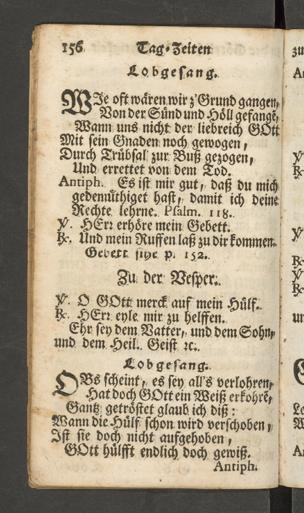 156 Tag-Zeiten
Lobgesang.
WIe oft wären wir z'Grund gangen,
Von der Sünd und Höll gefange,
Wann uns nicht der liebreich GOtt
Mit sein Gnaden noch gewogen,
Durch Trübsal zur Buß gezogen,
Und errettet von dem Tod.
Antiph. Es ist mir gut, daß du mich
gedemüthiget hast, damit ich deine
Rechte lehrne. Psalm. 118.
℣. HErr erhöre mein Gebett.
℟. Und mein Ruffen laß zu dir kommen.
Gebett sihe p. 152.
Zu der Vesper.
℣. O GOtt merck auf mein Hülf.
℟. HErr eyle mir zu helffen.
Ehr sey dem Vatter, und dem Sohn,
und dem Heil. Geist ꝛc.
Lobgesang.
OBs scheint, es sey all's verlohren,
Hat doch GOtt ein Weiß erkohrē,
Gantz getröstet glaub ich diß:
Wann die Hülf schon wird verschoben,
Ist sie doch nicht aufgehoben,
GOtt hülfft endlich doch gewiß.
Antiph.